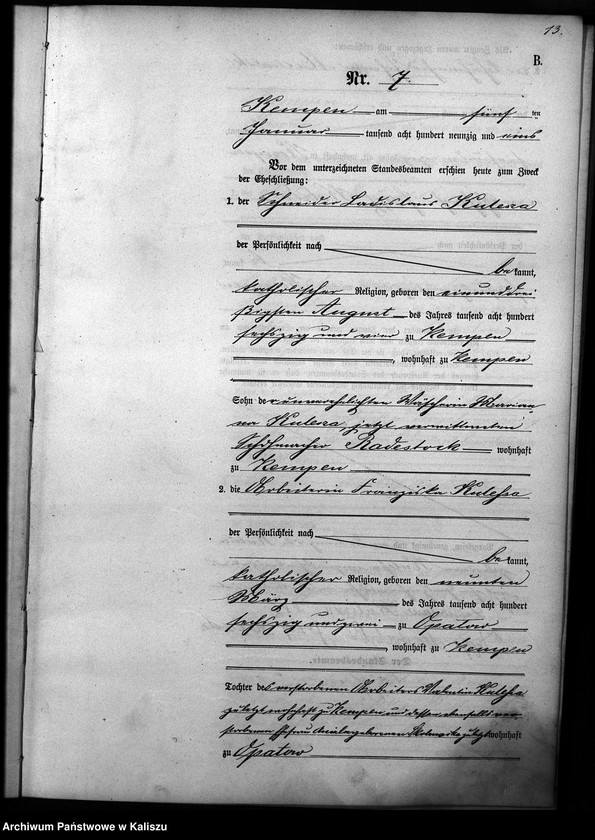 13.
B.
Nr. 7.
Kempen am fünf ten
Januar tausend acht hundert neunzig und eins
Vor dem unterzeichneten Standesbeamten erschien heute zum Zweck
der Eheschließung:
1. der Schneider Ladislaus Kulesza
der Persönlichkeit nach
be kannt,
katholischer Religion, geboren den einunddrei
ßigsten August des Jahres tausend acht hundert
sechszig und vier zu Kempen
, wohnhaft zu Kempen
Sohn der unverehelichten Wäscherin Marian-
na Kulesza jetzt verwittweten
Schuhmacher Radestock wohnhaft
zu Kempen
2. die Arbeiterin Franziska
der Persönlichkeit nach
be kannt,
katholischer Religion, geboren den neunten
März des Jahres tausend acht hundert
sechszig und zwei zu Opatow
, wohnhaft zu Kempen
Tochter des verstorbenen Arbeiters Valentin
zuletzt wohnhaft zu Kempen und dessen ebenfalls ver-
storbenen Ehefrau geborenen zuletzt wohnhaft
zu Opatow
Archiwum Państwowe w Kaliszu